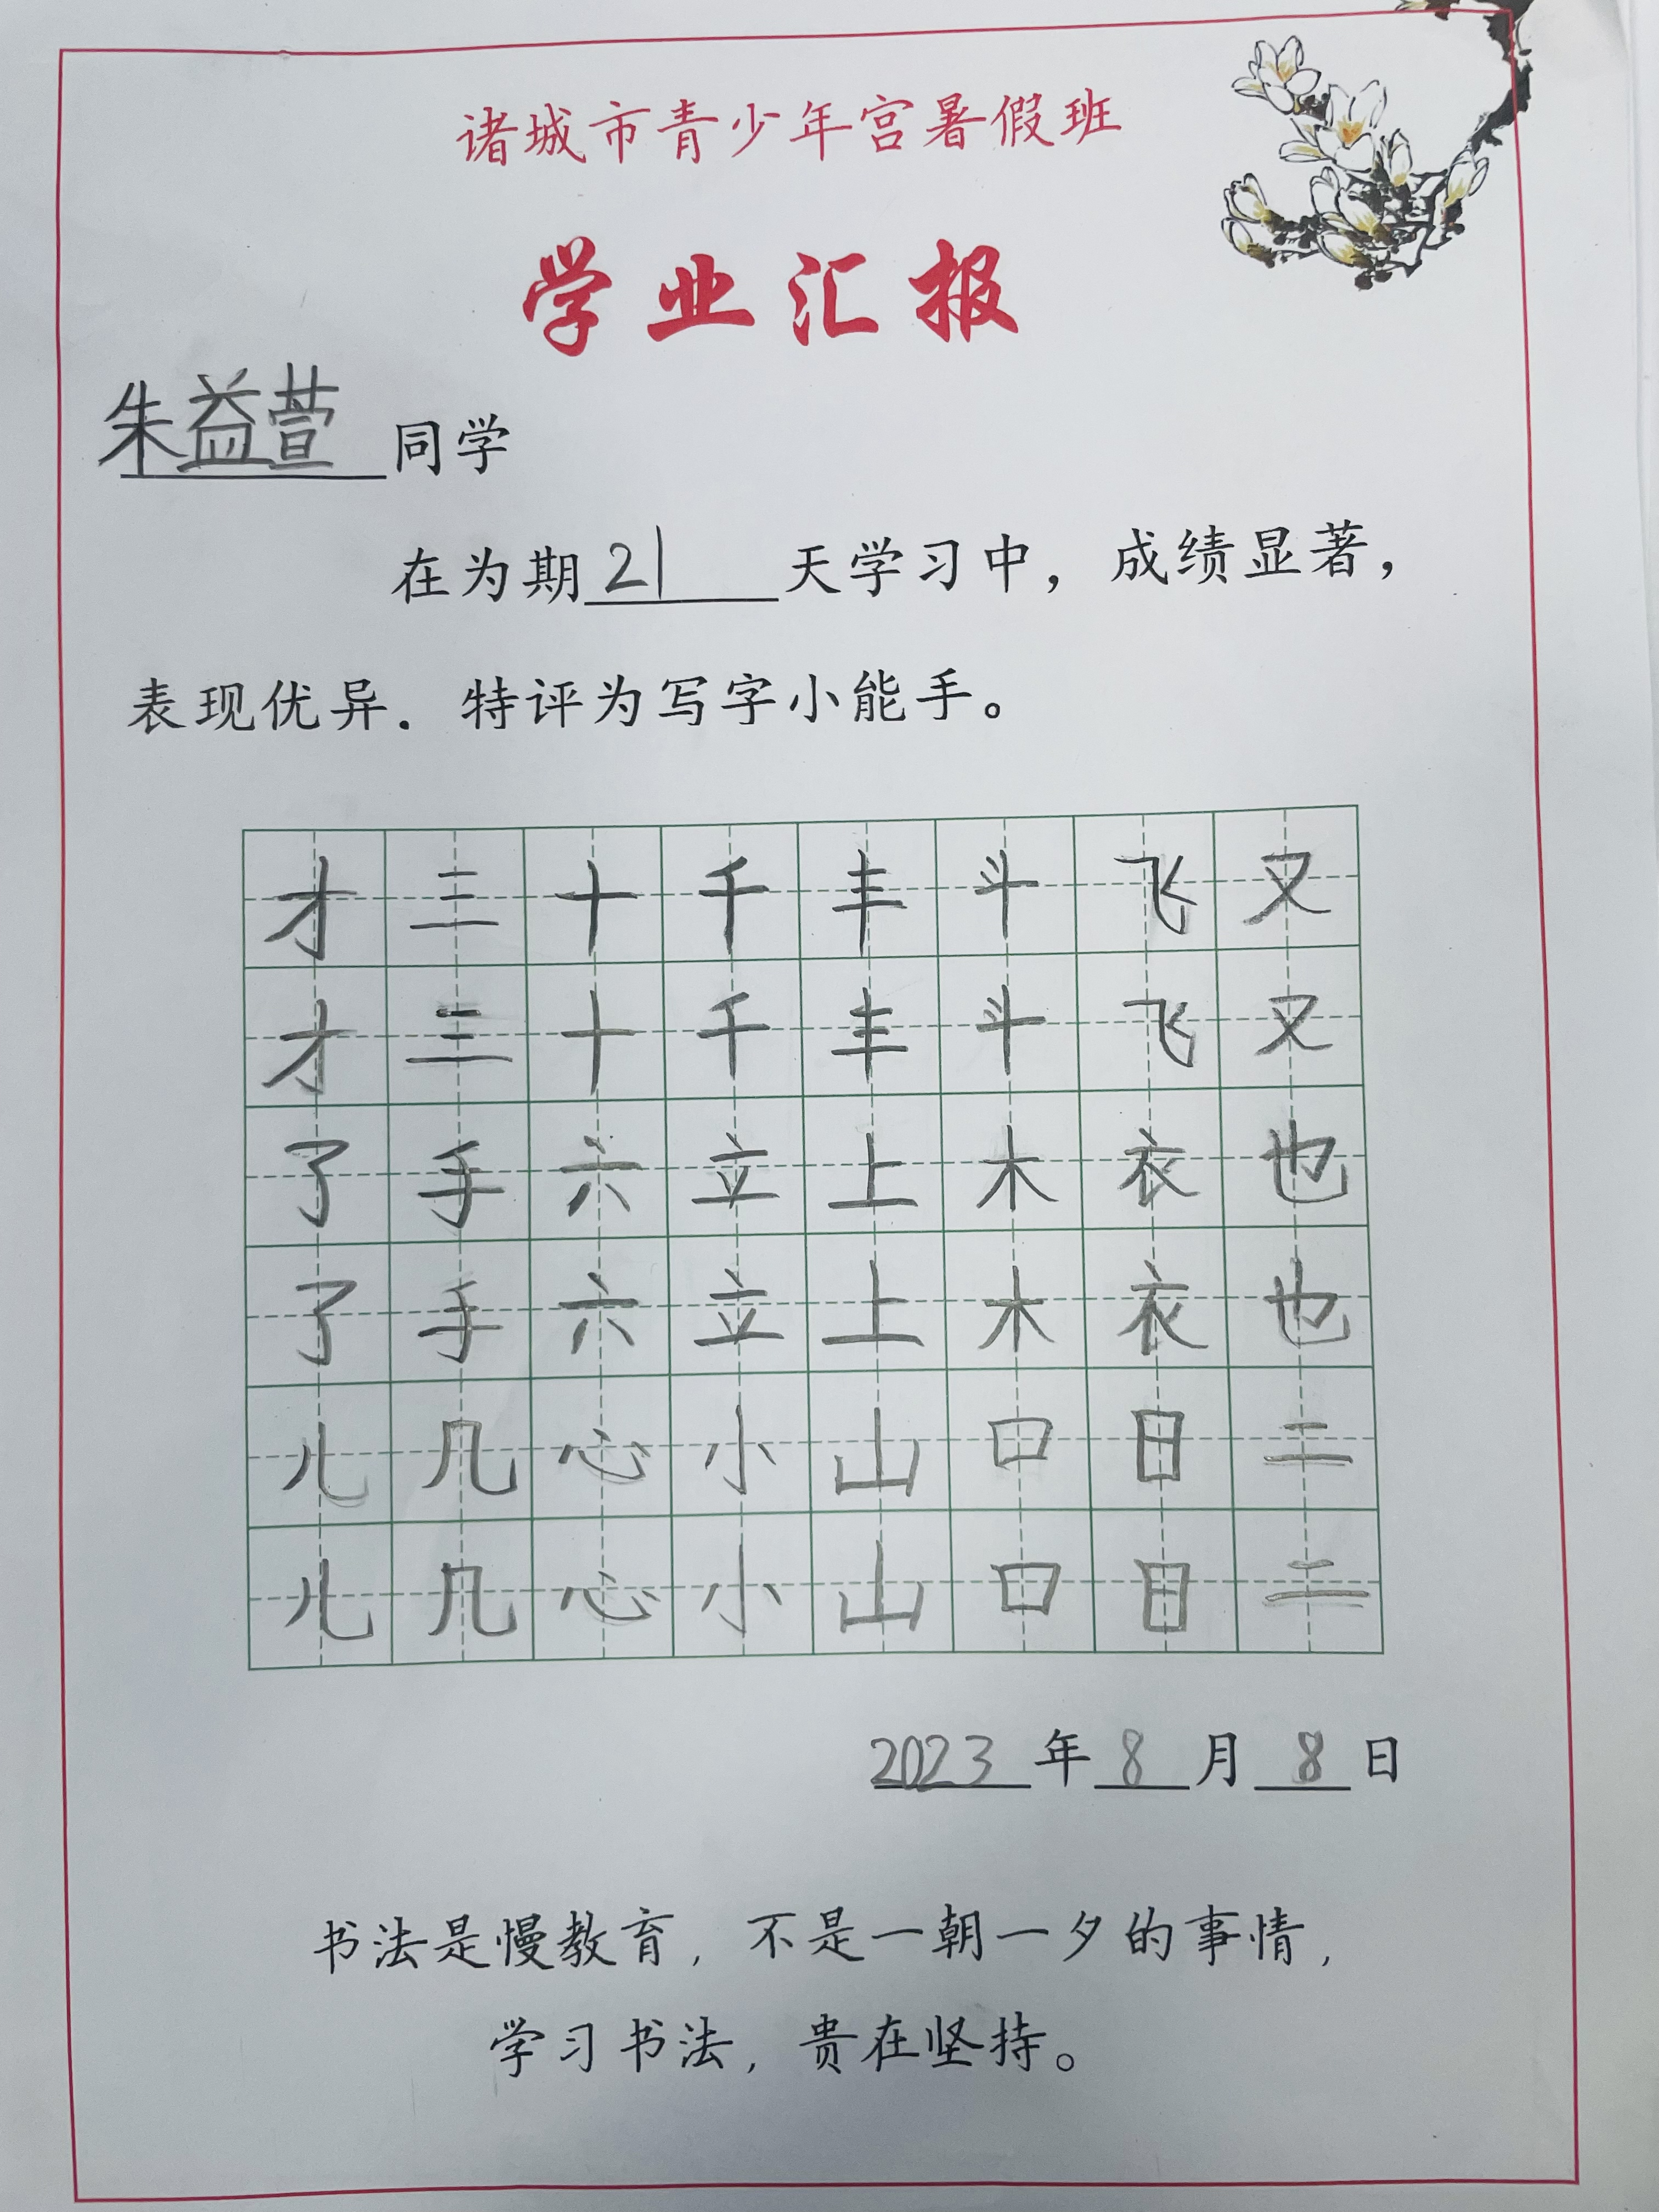 诸城市青少年宫暑假班
学业汇报
朱益萱同学
在为期21天学习中，成绩显著，
表现优异．特评为写字小能手。
才三十千丰斗飞又
才三十千丰斗飞又
了手六立上木衣也
了手六立上木衣也
儿几心小山口日二
儿几心小山口日二
2023年8月8日
书法是慢教育，不是一朝一夕的事情，
学习书法，贵在坚持。